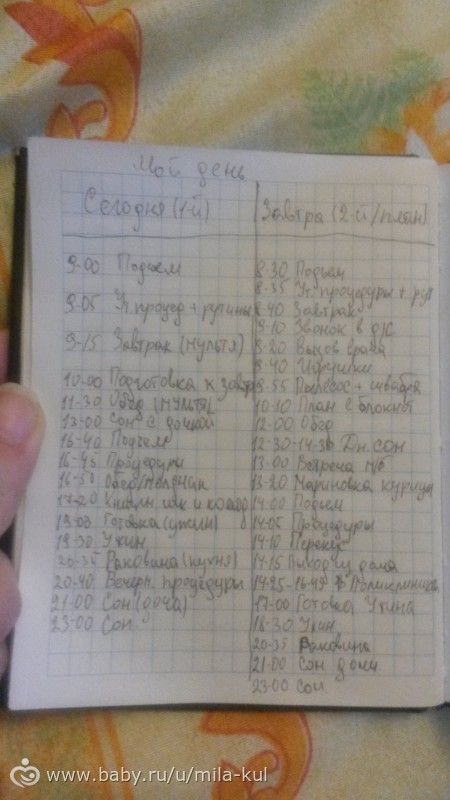 Мой день
Сегодня (1-й)
9-00 Подъем
9-05 Ут. процед + рутины
9-15 Завтрак (мульты)
10-00 Подготовка к завтр
11-30 Обед (мульты)
13-00 Сон с дочкой
16-40 Подъем
16-45 Процедуры
16-50 Обед/полдник
17-20
19-00 Готовка (ужин)
19-30 Ужин
20-35 Раковина (кухня)
20-40 Вечерн. процедуры
21-00 Сон (доча)
23-00 Сон
Завтра (2-й/план)
8-30 Подъем
8-35 Ут. процедуры + рут
8-40 Завтрак
9-10 Звонок в д/с
9-20 Вызов врача
9-40 Игрушки
9-55 Пылесос + швабра
10-10 План в блокнот
12-00 Обед
12-30-14-30 Дн. сон
13-00 Встреча
13-20 Мариновка курицы
14-00 Подъем
14-05 Процедуры
14-10 Перекус
14-15 Выход из дома
14-25-16-45 Поликлиника
17-00 Готовка Ужина
18-30 Ужин
20-35 Раковина
21-00 Сон дочи
23-00 Сон
www.baby.ru/u/mila-kul